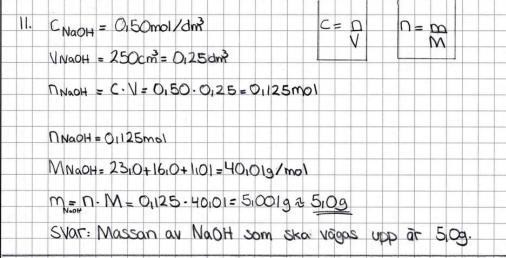 11. C NaOH = 0,50mol/dm³
c = n/V
n = m/M
V NaOH = 250cm³ = 0,25dm³
n NaOH = C · V = 0,50 · 0,25 = 0,125mol
n NaOH = 0,125mol
M NaOH = 23,0+16,0+1,01 = 40,01g/mol
m NaOH = n · M = 0,125 · 40,01 = 5,001g ≈ 5,0g
Svar: Massan av NaOH som ska vägas upp är 5,0g.